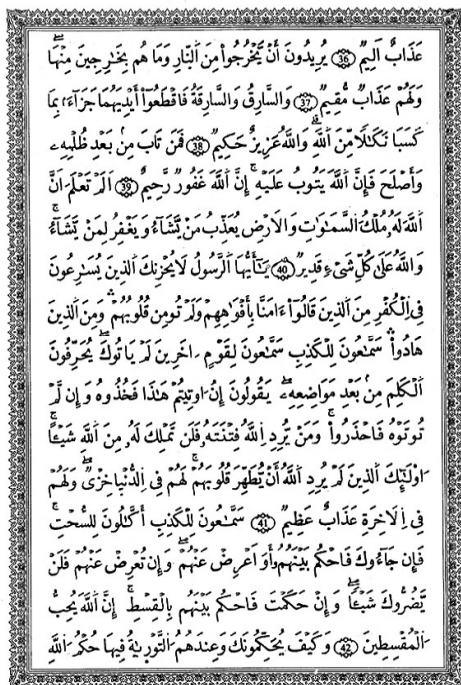 عَذَابٌ اَلِيمٌ ٣٦ يُرِيدُونَ أَنْ يَّخْرُجُواْ مِنَ اَلنّ۪ارِ وَمَا هُم بِخَٰرِجِينَ مِنْهَاۖ
وَلَهُمْ عَذَابٌ مُّقِيمٌۖ ٣٧ وَالسَّارِقُ وَالسَّارِقَةُ فَاقْطَعُوٓاْ أَيْدِيَهُمَا جَزَآءَۢ بِمَا
كَسَبَا نَكَٰلاً مِّنَ اَللَّهِۖ وَاللَّهُ عَزِيزٌ حَكِيمٌۖ ٣٨ فَمَن تَابَ مِنۢ بَعْدِ ظُلْمِهِۦ
وَأَصْلَحَ فَإِنَّ اَللَّهَ يَتُوبُ عَلَيْهِۖ إِنَّ اَللَّهَ غَفُورٌ رَّحِيمٌۖ ٣٩ اَلَمْ تَعْلَمَ اَنَّ
اَللَّهَ لَهُۥ مُلْكُ اُلسَّمَٰوَٰتِ وَالَارْضِ يُعَذِّبُ مَنْ يَّشَآءُ وَيَغْفِرُ لِمَنْ يَّشَآءُۖ
وَاللَّهُ عَلَىٰ كُلِّ شَےْءٖ قَدِيرٌۖ ٤٠ يَٰٓأَيُّهَا اَلرَّسُولُ لَا يُحْزِنكَ اَلذِينَ يُسَٰرِعُونَ
فِے اِلْكُفْرِ مِنَ اَلذِينَ قَالُوٓاْ ءَامَنَّا بِأَفْوَٰهِهِمْ وَلَمْ تُومِن قُلُوبُهُمْۖ وَمِنَ اَلذِينَ
هَادُواْۖ سَمَّٰعُونَ لِلْكَذِبِ سَمَّٰعُونَ لِقَوْمٍ اٰخَرِينَ لَمْ يَاتُوكَۖ يُحَرِّفُونَ
اَلْكَلِمَ مِنۢ بَعْدِ مَوَاضِعِهِۦۖ يَقُولُونَ إِنُ اوتِيتُمْ هَٰذَا فَخُذُوهُ وَإِن لَّمْ
تُوتَوْهُ فَاحْذَرُواْۖ وَمَنْ يُّرِدِ اِللَّهُ فِتْنَتَهُۥ فَلَن تَمْلِكَ لَهُۥ مِنَ اَللَّهِ شَيْـٔاًۖ
اُوْلَٰٓئِكَ اَلذِينَ لَمْ يُرِدِ اِللَّهُ أَنْ يُّطَهِّرَ قُلُوبَهُمْۖ لَهُمْ فِے اِلدُّنْي۪ا خِزْيٌۖ وَلَهُمْ
فِے اِلَاخِرَةِ عَذَابٌ عَظِيمٌۖ ٤١ سَمَّٰعُونَ لِلْكَذِبِ أَكَّٰلُونَ لِلسُّحْتِۖ
فَإِن جَآءُوكَ فَاحْكُم بَيْنَهُمُۥٓ أَوَ اَعْرِضْ عَنْهُمْۖ وَإِن تُعْرِضْ عَنْهُمْ فَلَنْ
يَّضُرُّوكَ شَيْـٔاًۖ وَإِنْ حَكَمْتَ فَاحْكُم بَيْنَهُم بِالْقِسْطِۖ إِنَّ اَللَّهَ يُحِبُّ
اُلْمُقْسِطِينَۖ ٤٢ وَكَيْفَ يُحَكِّمُونَكَ وَعِندَهُمُ اُلتَّوْر۪يٰةُ فِيهَا حُكْمُ اُللَّهِ